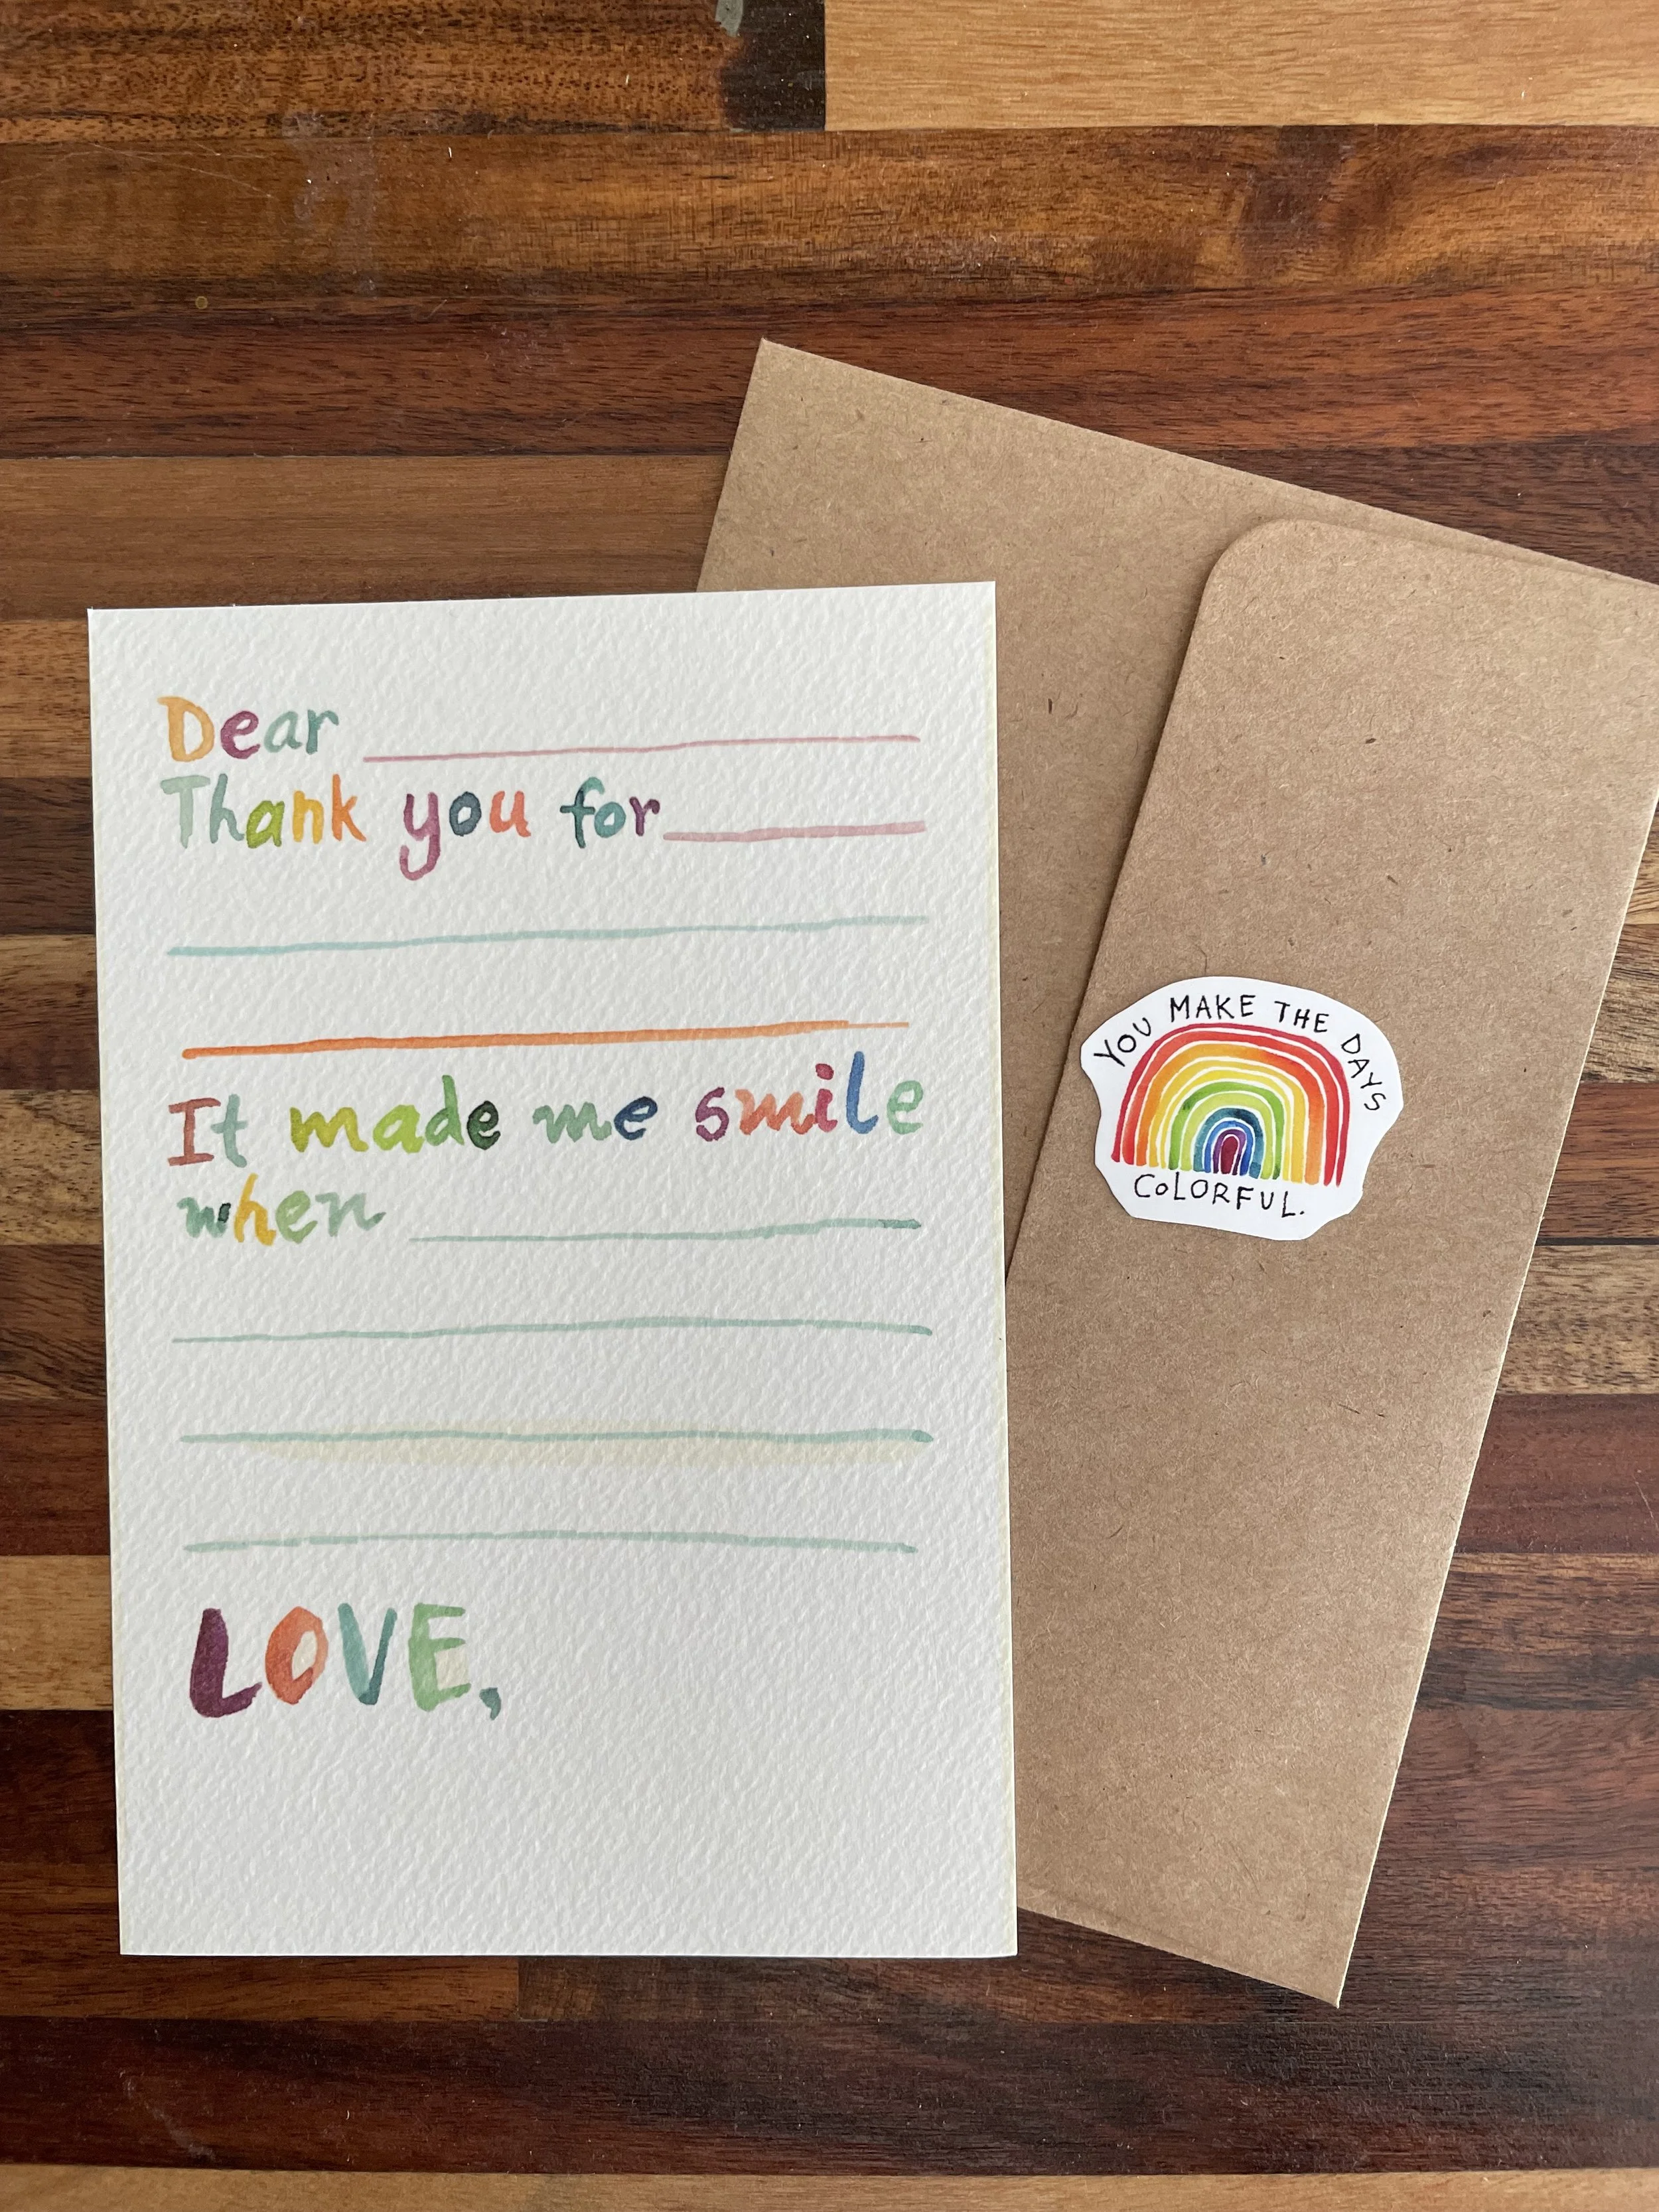 Dear
Thank you for
It made me smile
when
LOVE,
YOU MAKE THE DAYS
COLORFUL.